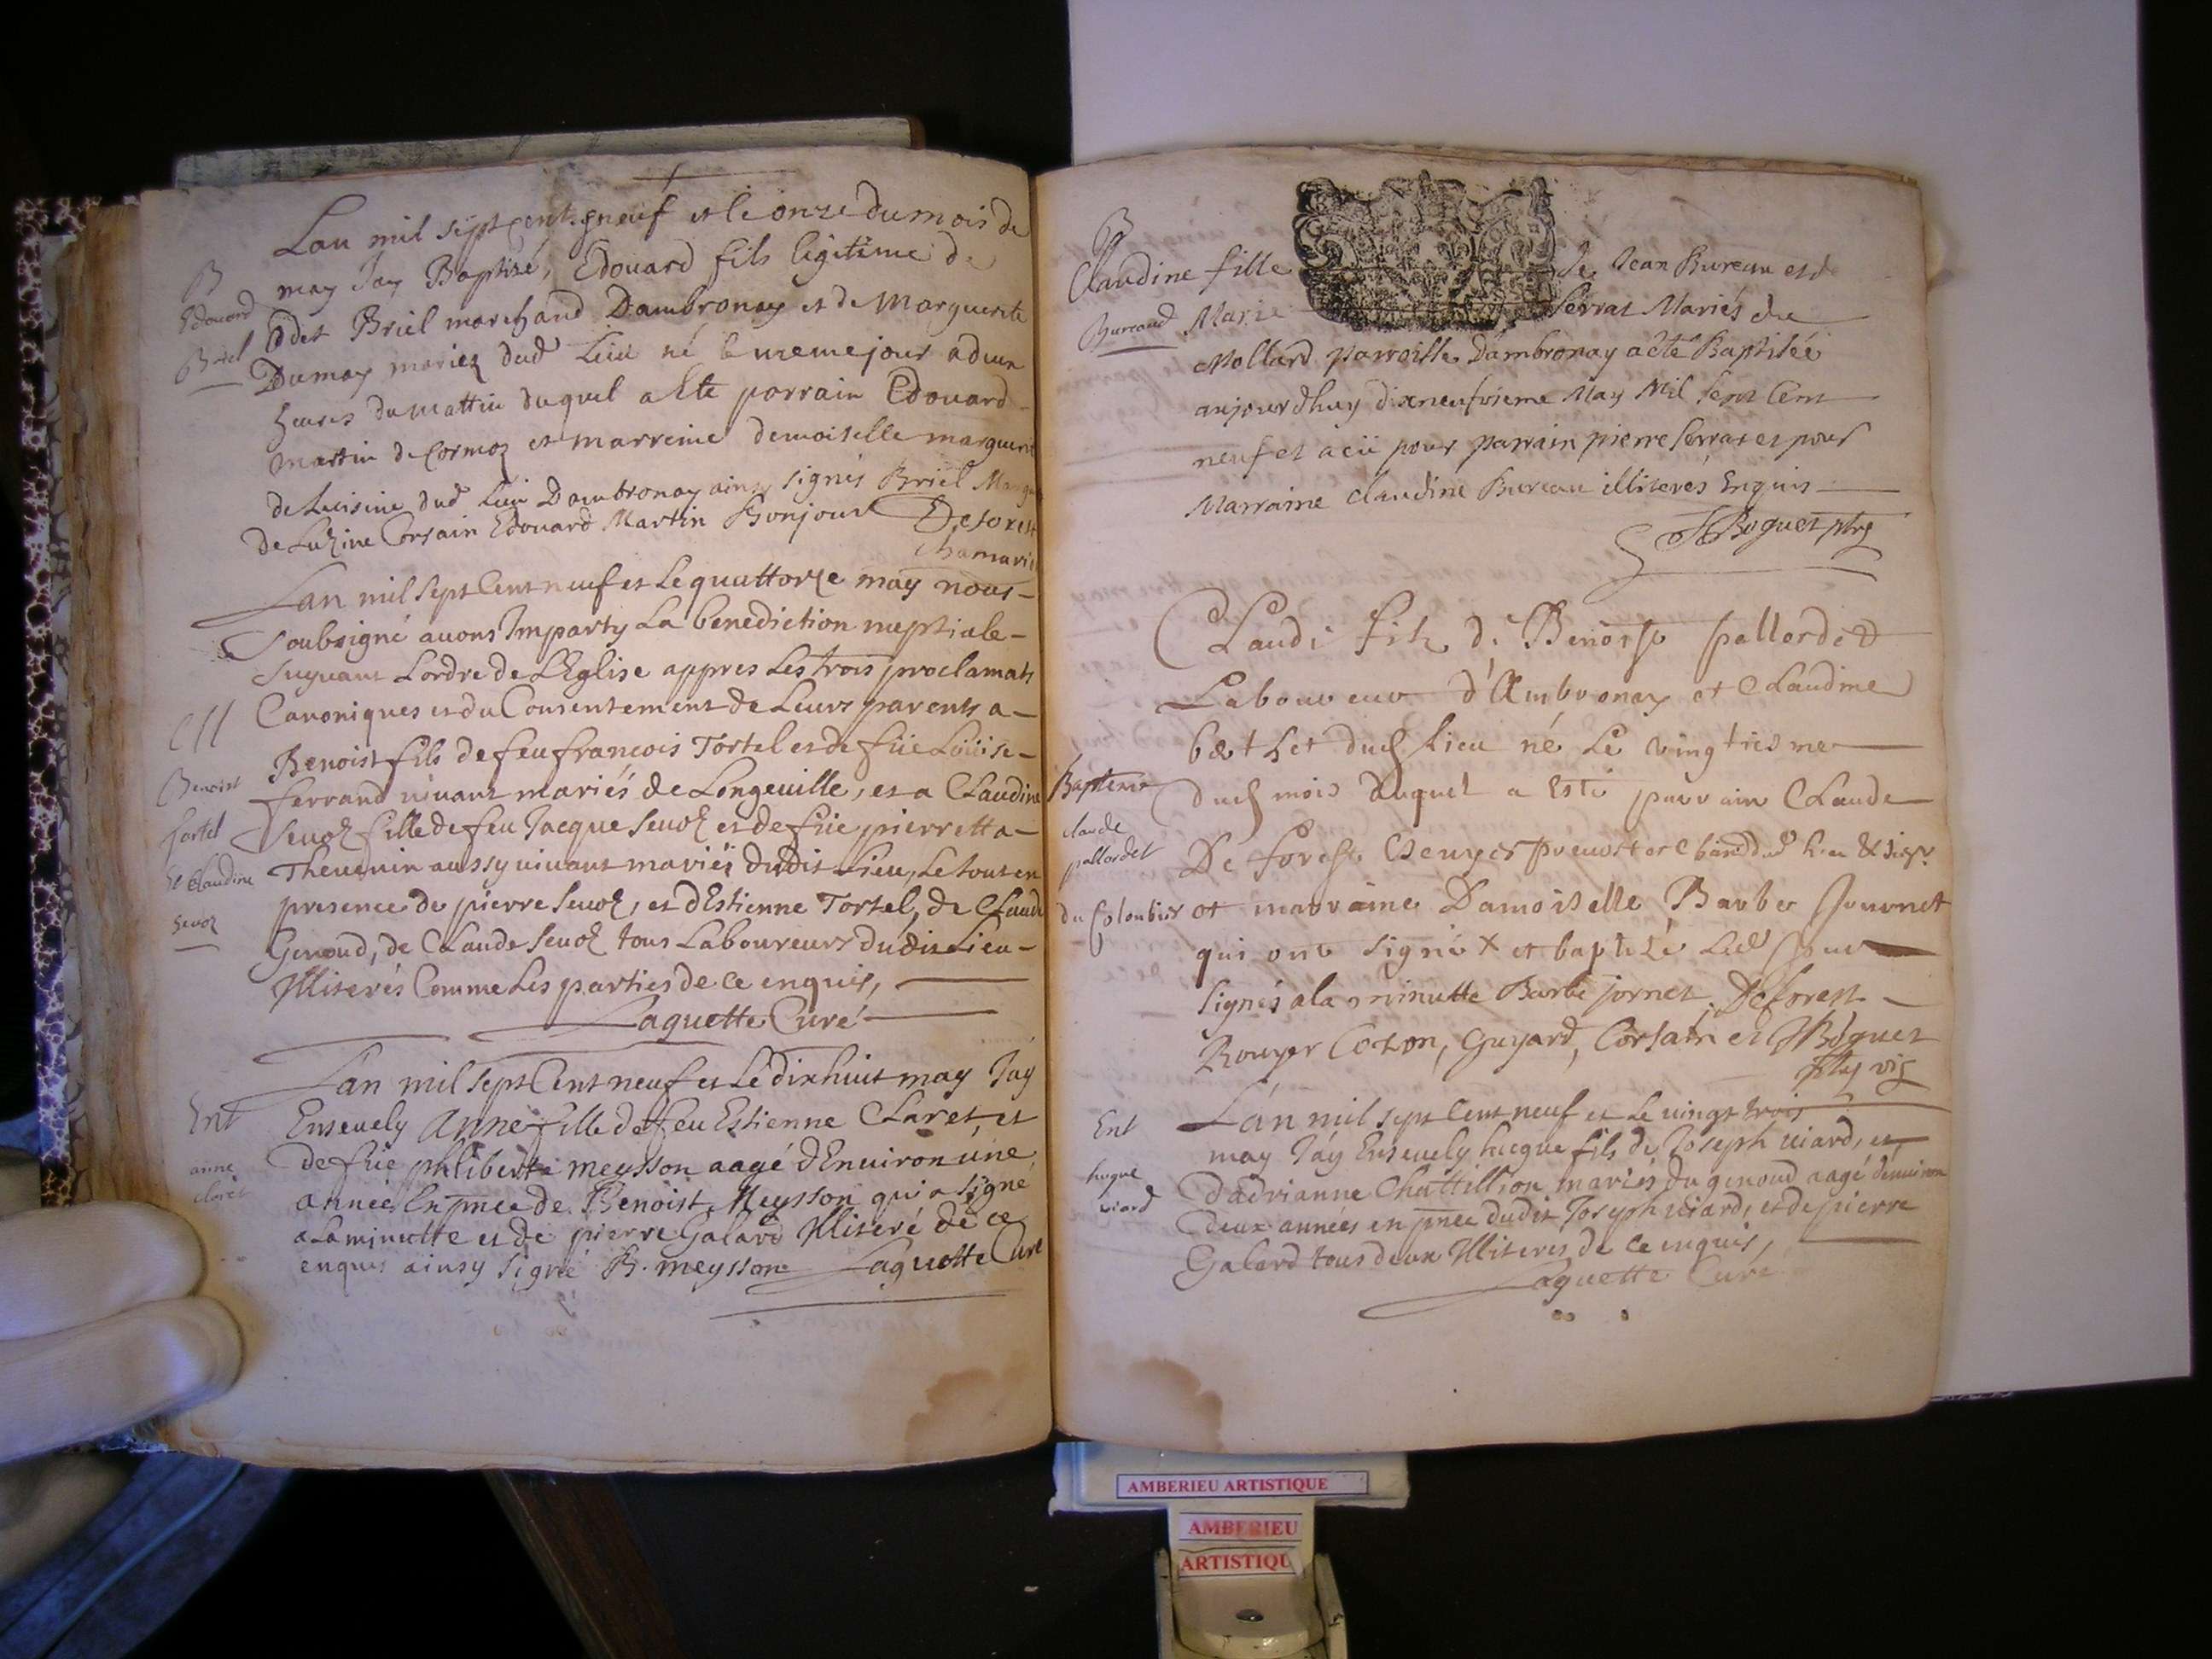 Lan mil sept cent neuf et le onze du mois de
may Jay Baptizé, Edouard filsligitime de
B
Edouard
Briel
Odet Briel marchand Dambronay et de Marguerite
Dumay mariez dud Lieu né le meme jour a deux
heures du mattin duquel a Ete parrain Edouard
Martin de Cormoz et marreine demoiselle marguerite
de Lucisine dud Lieu Dambronay ainsy signés Briel Margu
de Luzine Corsain Edouard Martin Bonjour Deforest
chamari
Lan mil sept Cent neuf et Le quattorze may nous
soubsigné auons Imparty La benediction nuptiale
suyuant Lordre de LEglise appres Les trois proclamats
Canoniques et du Consentement de Leurs parents a
M
Benoist
tortel
Et Claudine
seuoz
Benoist fils de feu francois Tortel et de füe Loüise
ferrand uiuant mariés de Longeuille, et a Claudine
Seuoz fille de feu Jacque Seuoz et de füe pierretta
Theuenin aussy uiuant mariés dudit Lieu, Le tout en
presence de pierre Seuoz, et dEstienne Tortel, de Claude
Genoud, de Claude Seuoz tous Laboureurs dudit Lieu
Illiterés Comme Les parties de ce enquis,
Laguette Curé
Lan mil sept Cent neuf et Le dixhuit may Jay
Ent
anne
claret
Enseuely Anne fille de feu Estienne Claret, et
de füe philiberte meysson aagé dEnuiron une
année En pnce de Benoist Meysson qui a signé
a La minutte et de pierre Galard Illiteré de ce
enquis ainsy signé B. meysson Laguette Curé
B
Claudine fille de Jean Bureau et de
Bureaud
Marie Serrat Mariés du
Mollard parroisse Dambronay a été Baptisée
aujourdhuy dixneufuieme May Mil Sept Cent
neuf et a eü pour parrain pierre Serrat et pour
Marraine claudine Bureau illiterés Enquis
Boguet ptre
Claude filz de Benoist pallordet
Laboureur d'Ambronay et Claudine
dud Lieu né Le vingtiesme
Bapteme
claude
pallordet
du Colombier
dud mois duquel a Esté parrain Claude
De forest
et marraine Damoiselle Barbe Journet
qui ont signé X et baptizé Led jour
signés a la minutte Barbe jornet, Deforest
Rouyer Cozon, Guyard, Corsain et Boguet
ptre vic
Lan mil sept Cent neuf et Le uingt trois
Ent
hugue
uiard
may Jay Enseuely hugue fils de Joseph uiard, et
dadrianne Chattillion mariés du genoud aagé denuiron
deux années en pnce dudit Joseph uiard, et de pierre
Galard tous deux Illiteres de ce enquis,
Laguette Curé
AMBERIEU ARTISTIQUE
AMBERIEU
ARTISTIQU